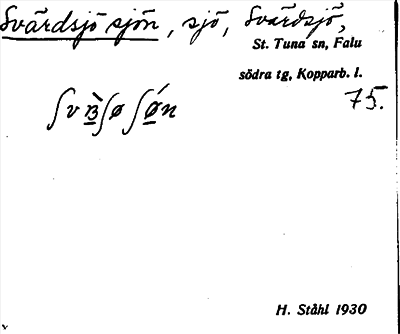 Svärdsjö sjön, sjö, Svärdsjö,
St. Tuna sn, Falu
södra tg, Kopparb. l.
75.
H. Ståhl 1930